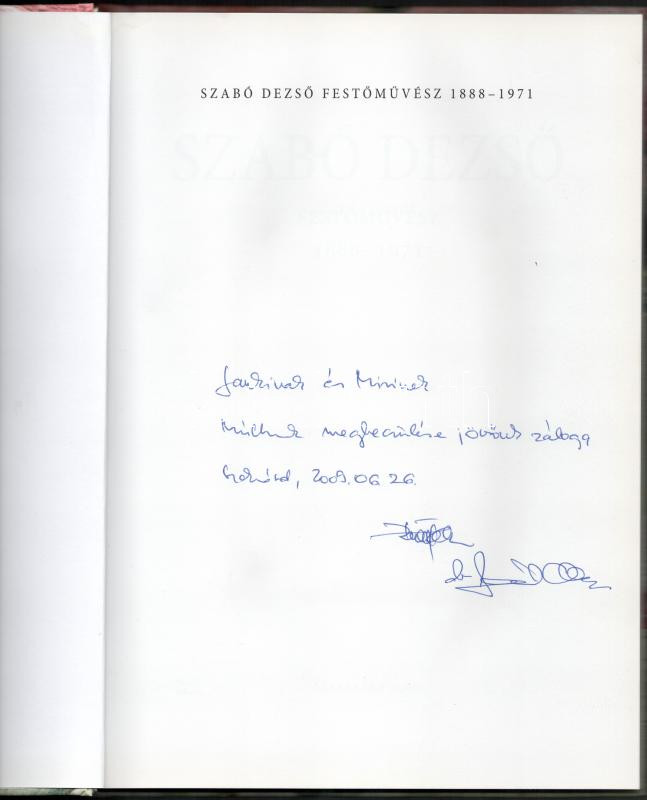 SZABÓ DEZSŐ FESTŐMŰVÉSZ 1888–1971
SZABÓ DEZSŐ
FESTŐMŰVÉSZ
1888–1971
és Miminek
Múltunk megbecsülése jövőnk záloga
2009.06.26.
dr